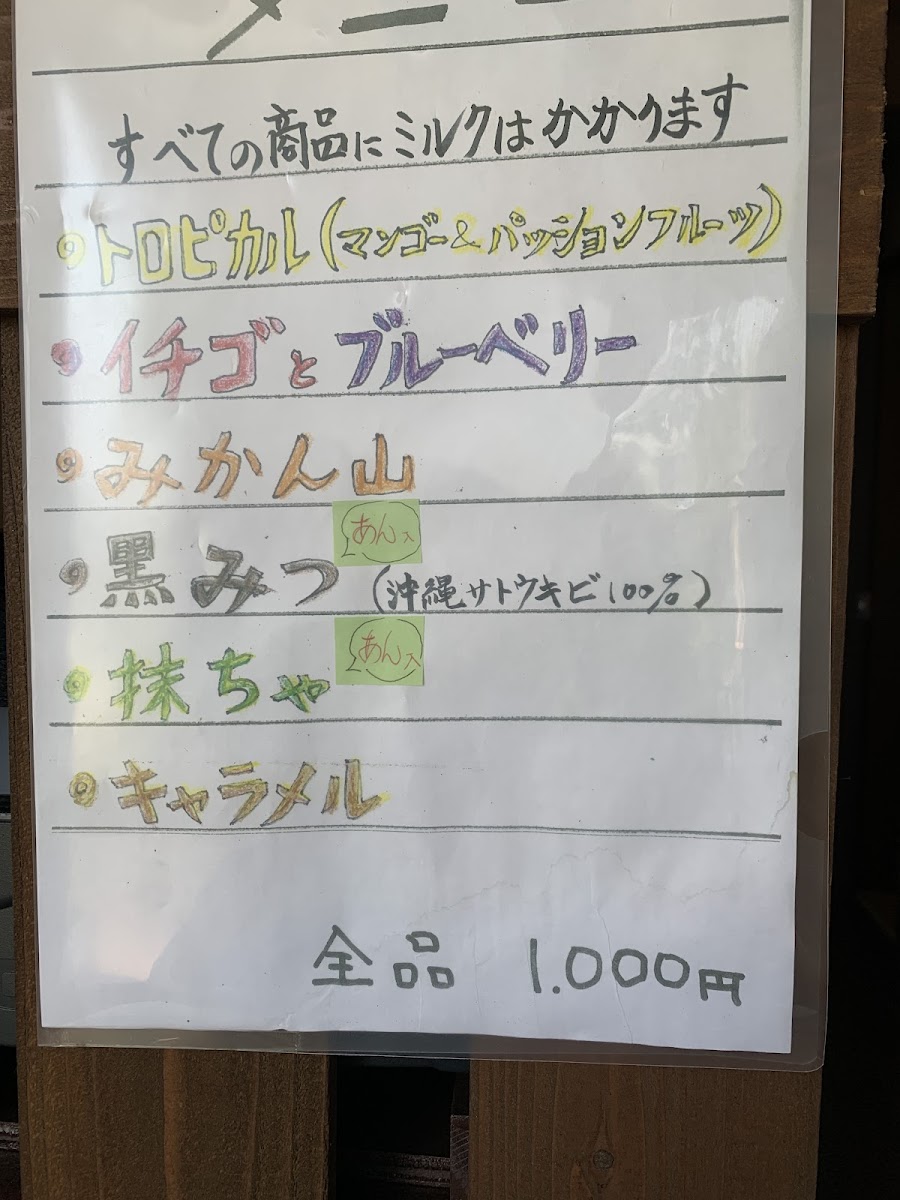 メニュー
すべての商品にミルクはかかります
トロピカル(マンゴー&パッションフルーツ)
イチゴとブルーベリー
みかん山
あん入
黒みつ (沖縄サトウキビ100%)
あん入
抹ちゃ
キャラメル
全品 1.000円